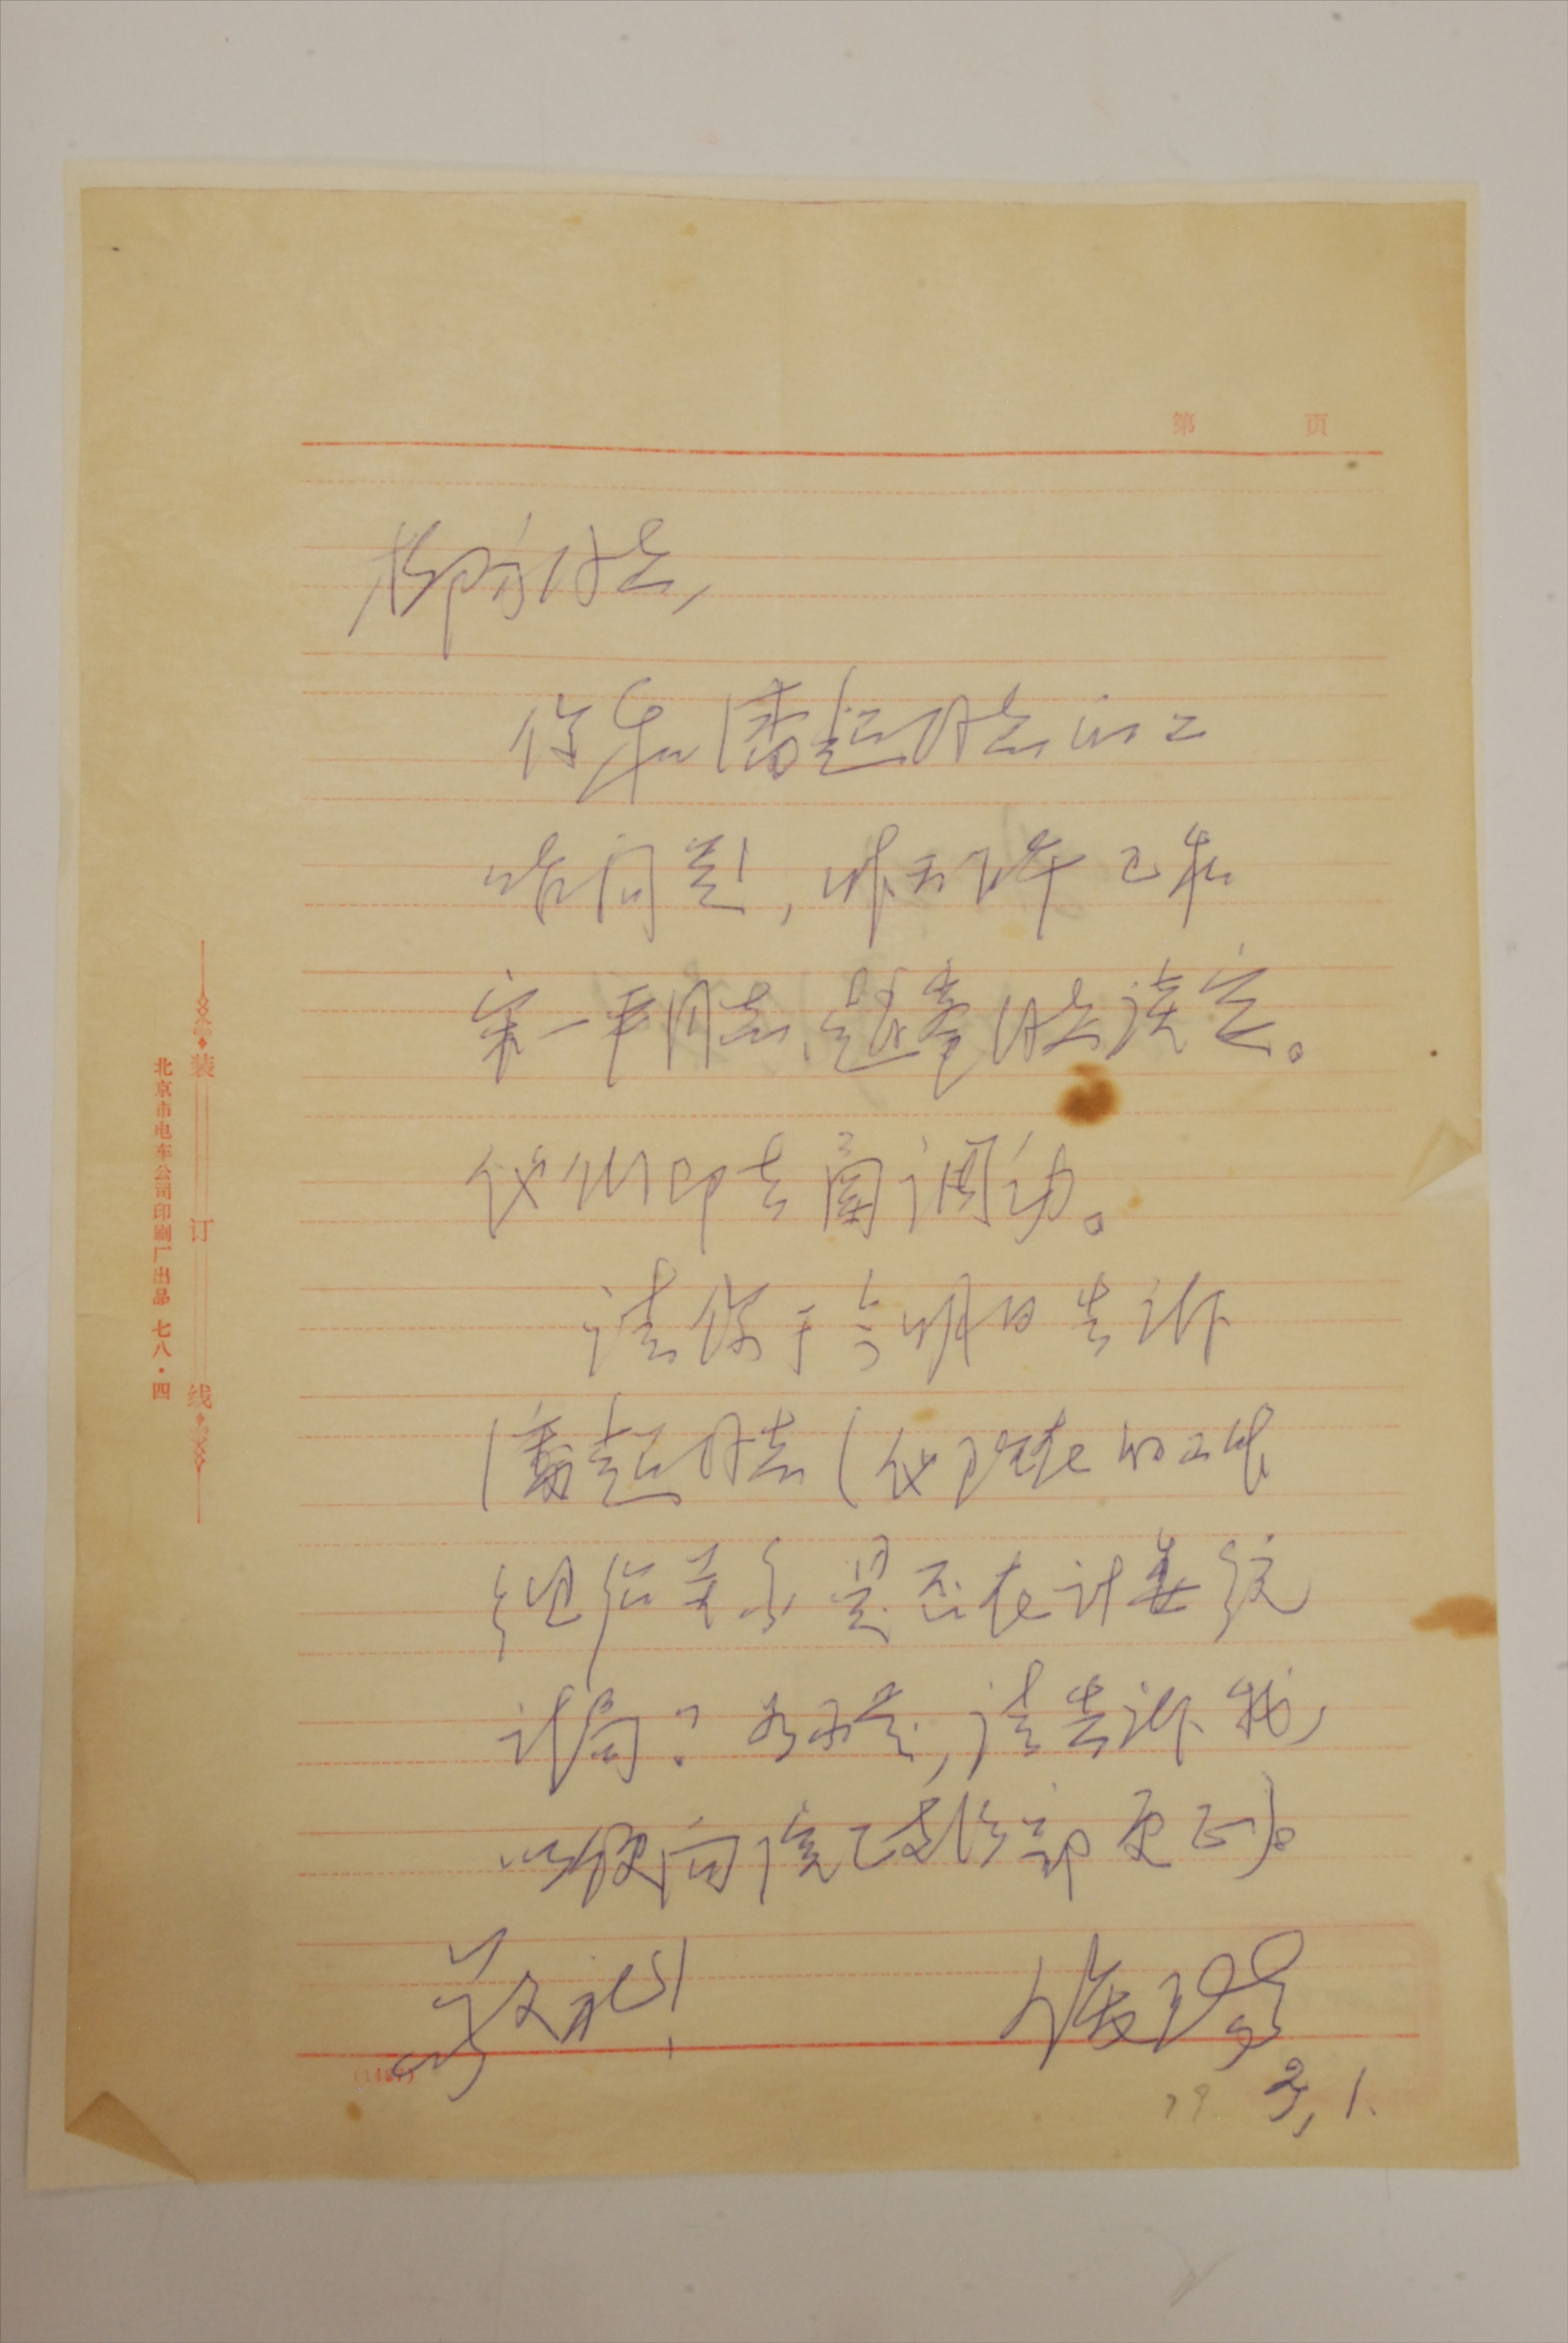 第 页
同志,
你和潘超同志的工
作问题,昨天下午已和
宋一平同志、同志谈定。
他们即去函调动。
请你于今明日告诉
潘超同志(他现在的工作
组织关系是否在计委统
计局?如不是,请告诉我,
以便向院政治部更正)。
敬礼!
79 3,1.
装订线
北京市电车公司印刷厂出品 七八·四